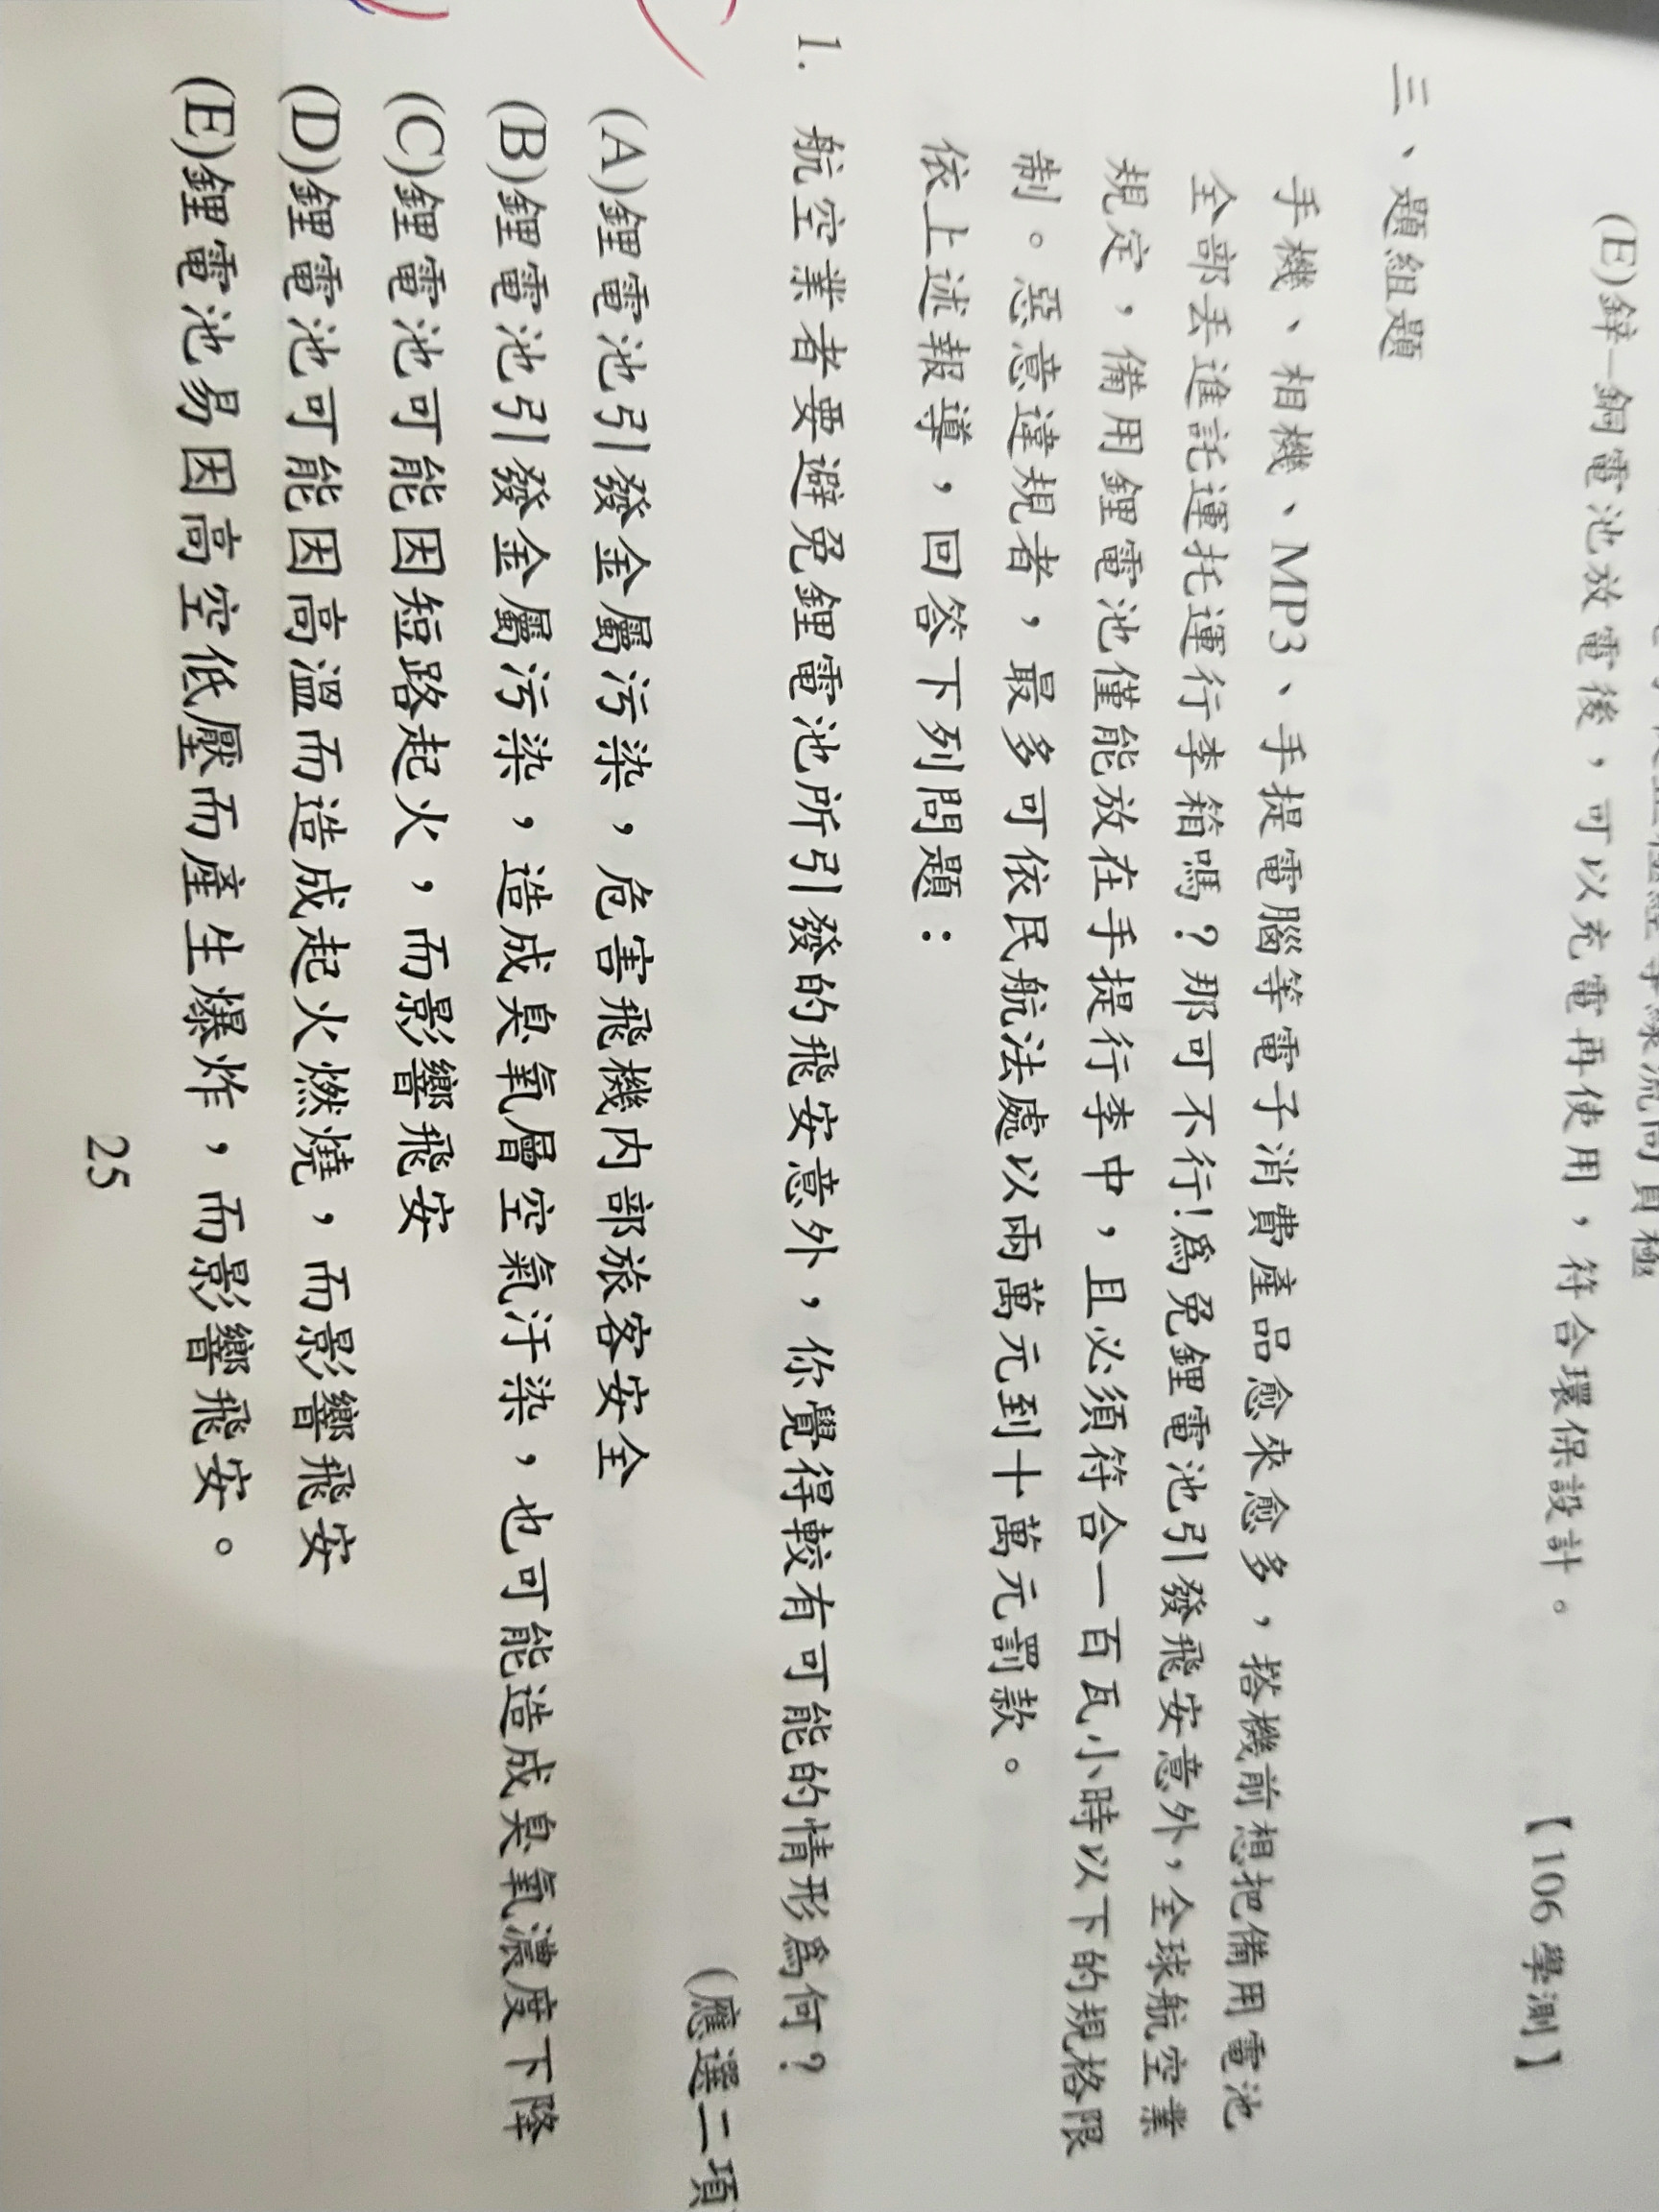 (E)鋅–銅電池放電後，可以充電再使用，符合環保設計。
【106 學測】
三、題組題
手機、相機、MP3、手提電腦等電子消費產品愈來愈多，搭機前想把備用電池
全部丟進託運托運行李箱嗎？那可不行!為免鋰電池引發飛安意外，全球航空業
規定，備用鋰電池僅能放在手提行李中，且必須符合一百瓦小時以下的規格限
制。惡意違規者，最多可依民航法處以兩萬元到十萬元罰款。
依上述報導，回答下列問題：
1. 航空業者要避免鋰電池所引發的飛安意外，你覺得較有可能的情形為何？
(應選二項
(A)鋰電池引發金屬污染，危害飛機內部旅客安全
(B)鋰電池引發金屬污染，造成臭氧層空氣汙染，也可能造成臭氧濃度下降
(C)鋰電池可能因短路起火，而影響飛安
(D)鋰電池可能因高溫而造成起火燃燒，而影響飛安
(E)鋰電池易因高空低壓而產生爆炸，而影響飛安。
25